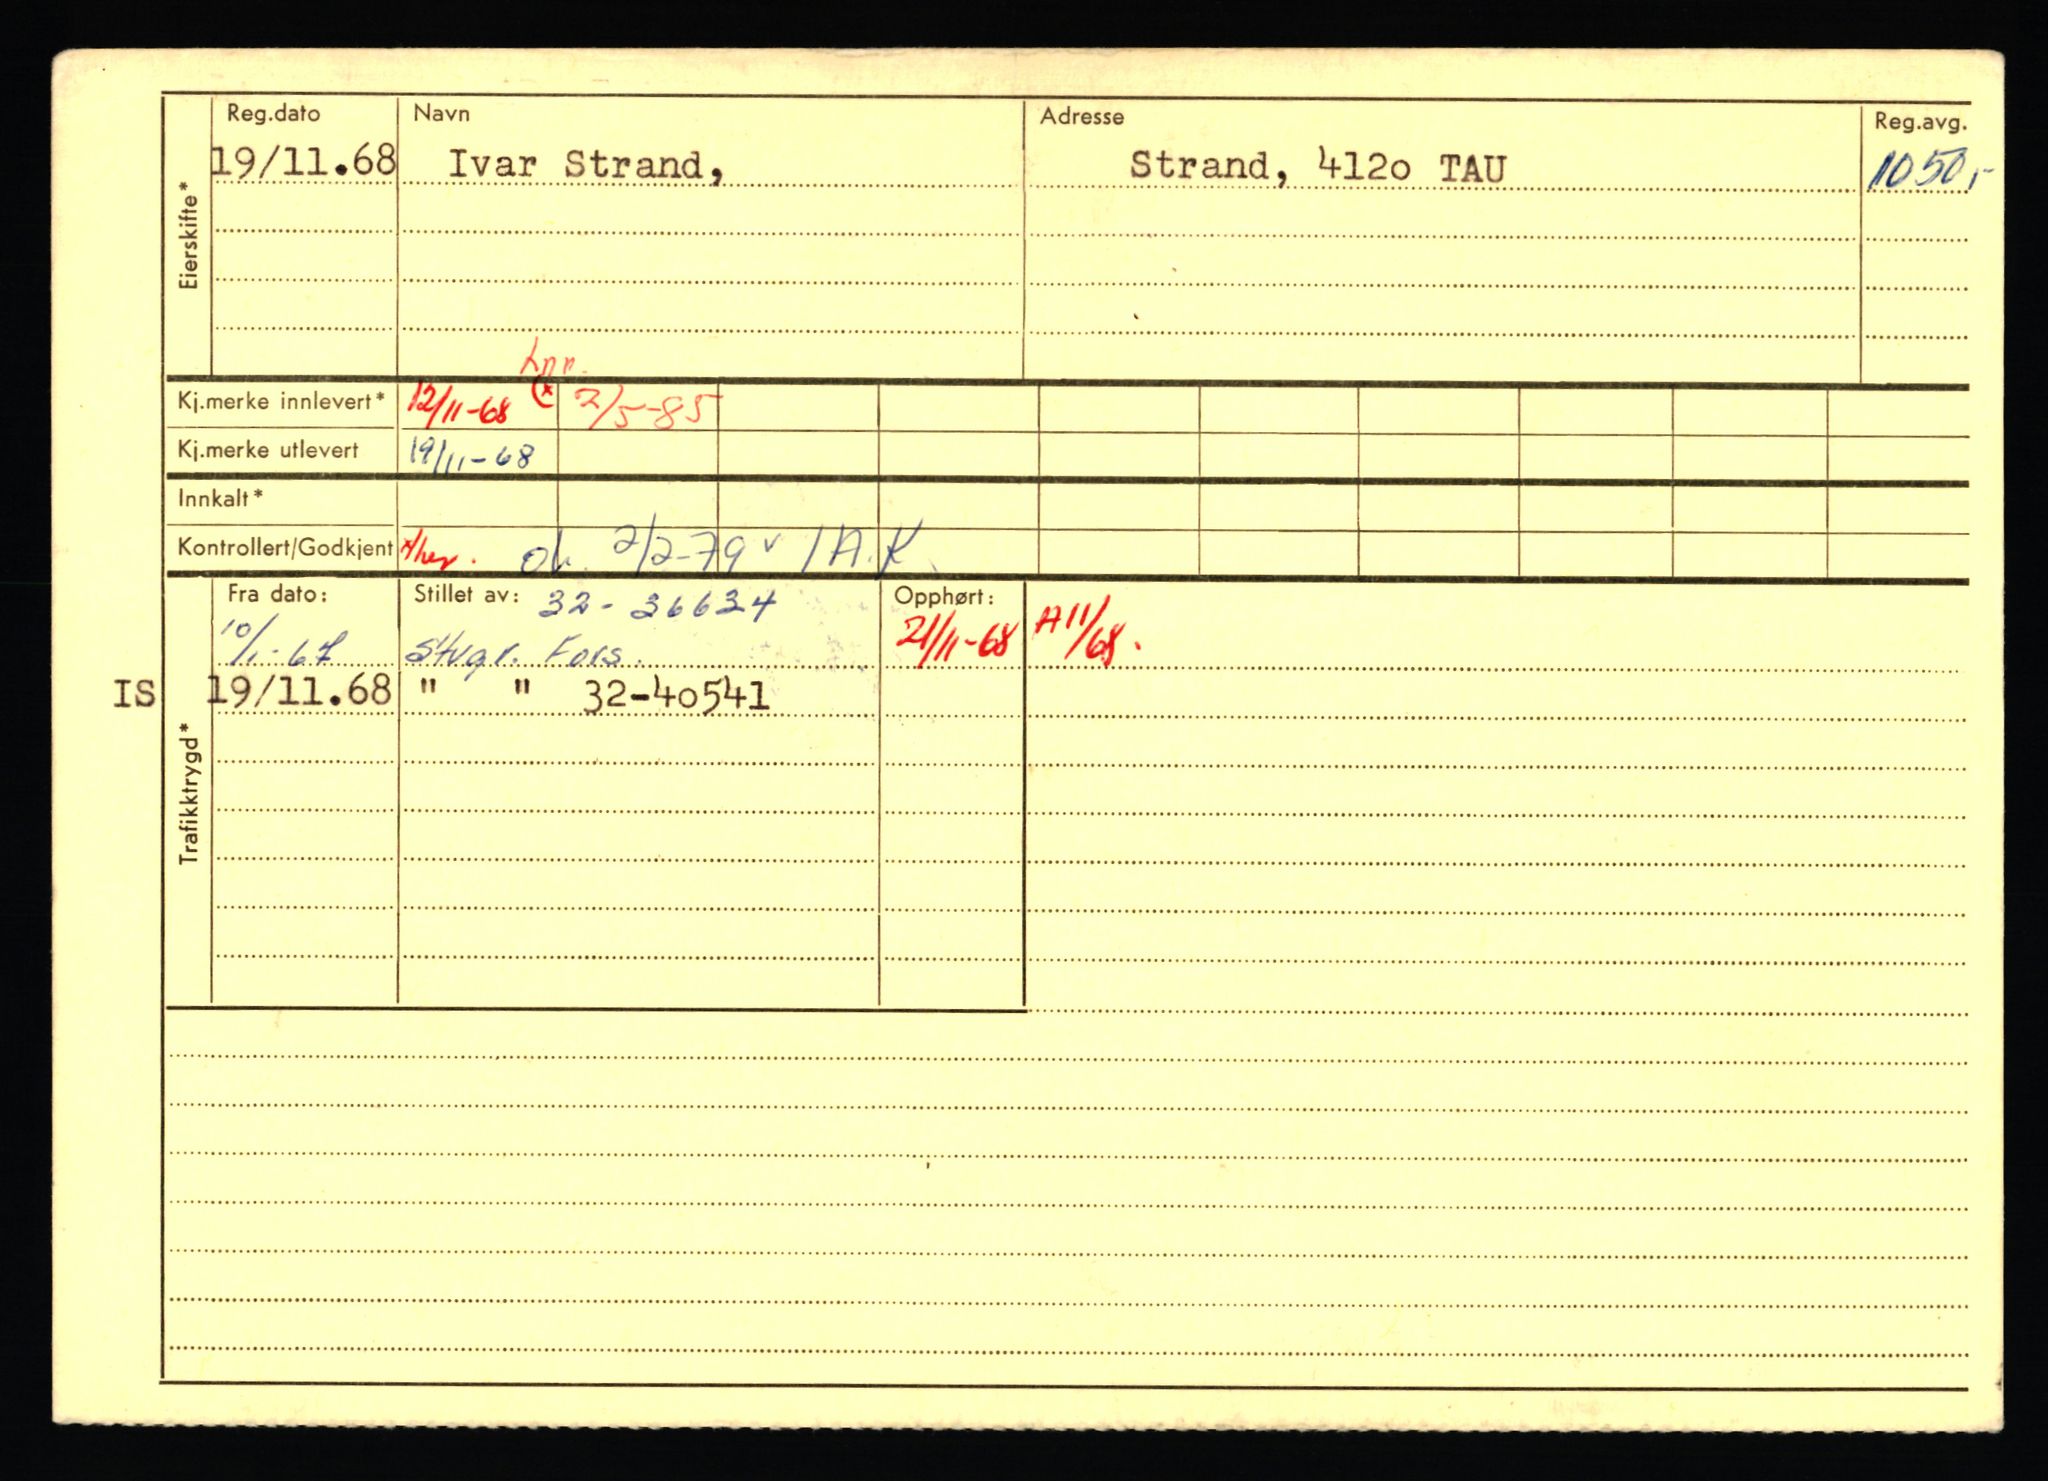 Reg.dato Navn Adresse Reg.avg.
19/11.68 Ivar Strand, Strand, 412o TAU 1050,-
Eierskifte*
Kj.merke innlevert* 12/11-68 (x 2/5-85
Kj.merke utlevert 19/11-68
Innkalt*
Kontrollert/Godkjent ok. 2/2-79 v/A.K.
Fra dato: Stillet av: 32-36634 Opphørt:
10/1-67 Stvgr. Fors. 21/11-68 A11/68.
IS 19/11.68 " " 32-4o541
Trafikktrygd*